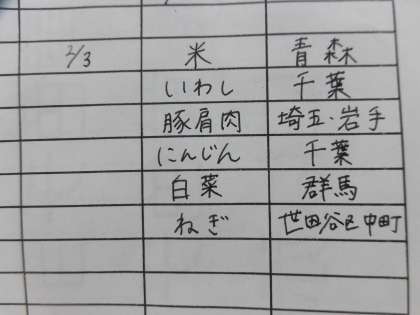 2/3 米 青森
いわし 千葉
豚肩肉 埼玉・岩手
にんじん 千葉
白菜 群馬
ねぎ 世田谷区中町